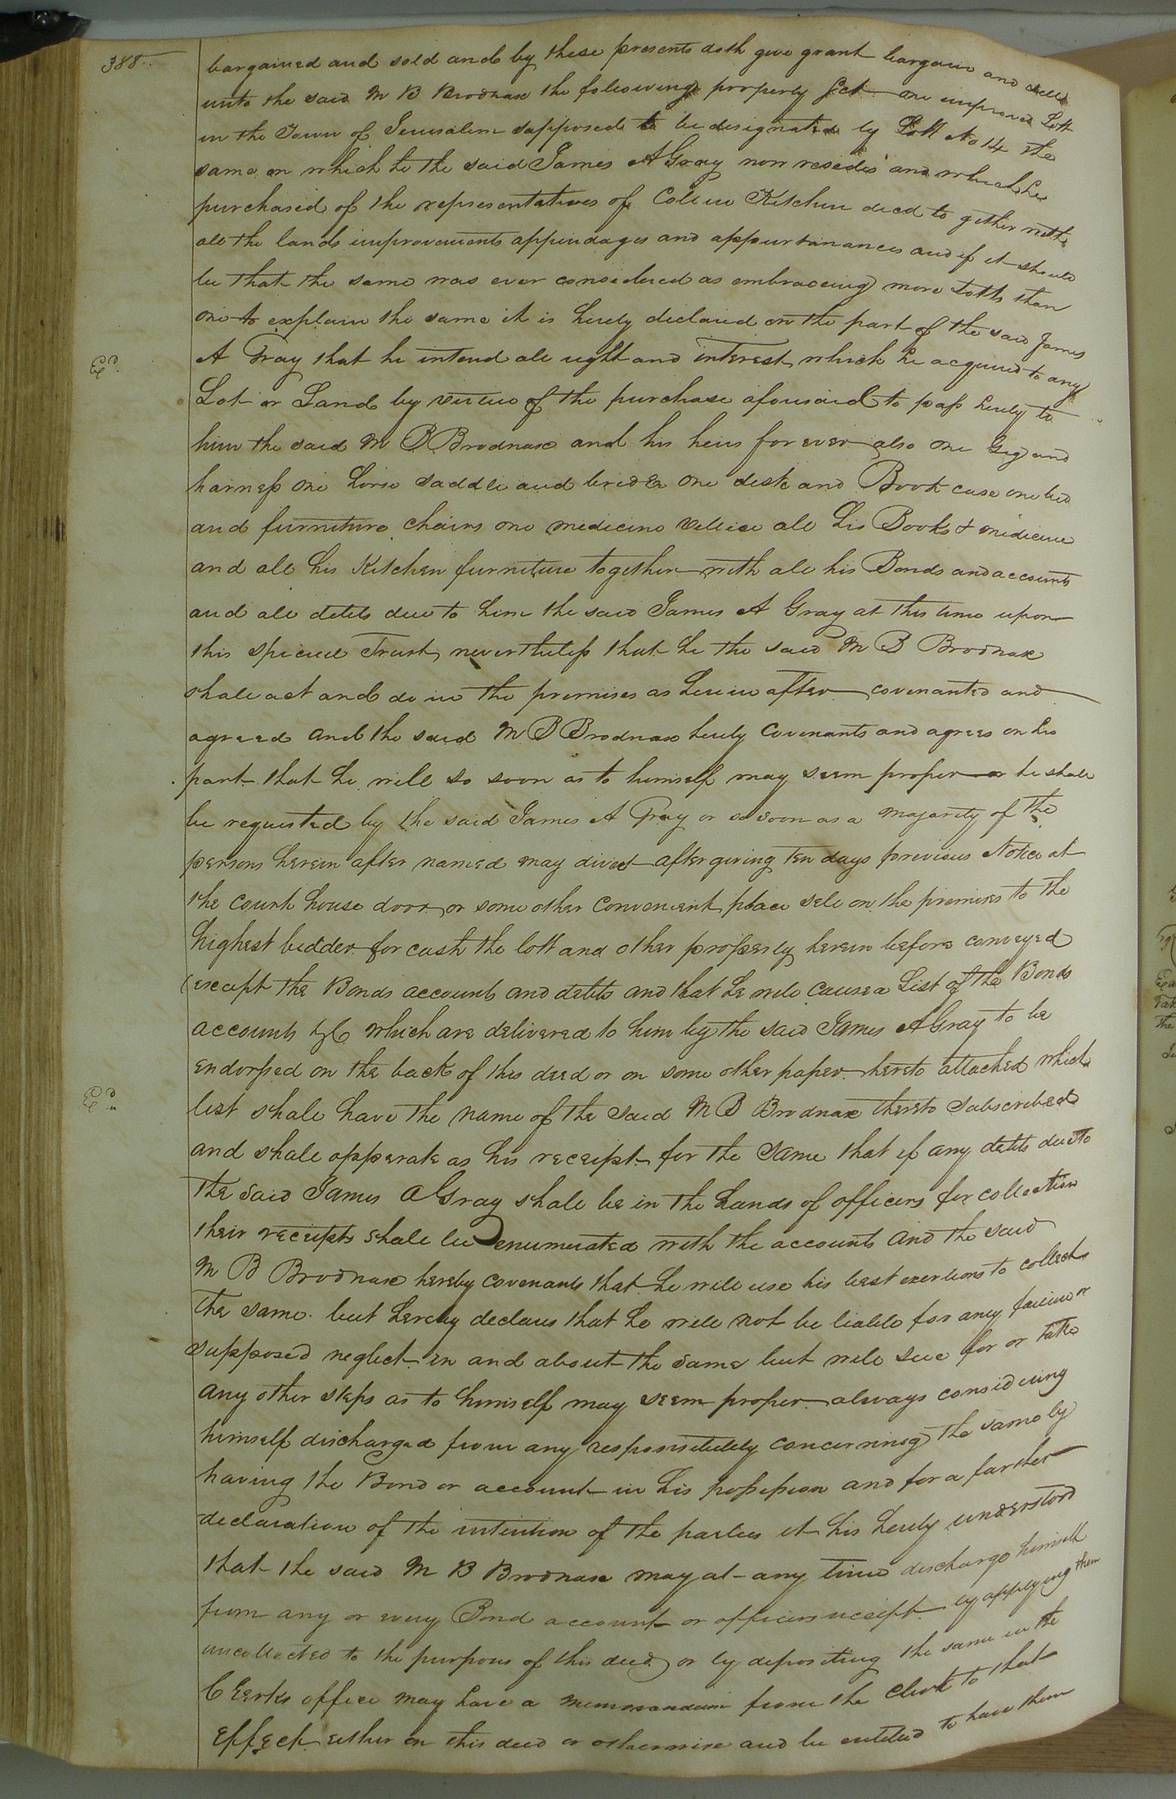 388
bargained and sold and by these presents doth give grant bargain and sell
unto the said M B Brodnax the following property to wit one improved Lott
in the Town of Jerusalem supposed to be designated by Lott No 14 the
same on which he the said James A Gray now resides and which he
purchased of the representatives of Colin Kitchen decd to gether with
all the lands improvements appendages and appurtenances and if it should
be that the same was ever considered as embraceing more Lotts than
one to explain the same it is hereby declared on the part of the said James
A Gray that he intend all right and interest which he acquired to any
Lot or Land by virtue of the purchase aforesaid to pass hereby to
him the said M B Brodnax and his heirs for ever also one Gig and
harness one horse saddle and bridle one desk and Book case one bed
and furniture chairs one medicine vallise all his Books & medicine
and all his Kitchen furniture together with all his Bonds and accounts
and all debts due to him the said James A Gray at this time upon
this special Trust nevertheless that he the said M B Brodnax
shall act and do in the premises as herein after covenanted and
agreed and the said M B Brodnax hereby covenants and agrees on his
part that he will so soon as to himself may seem proper or he shall
be requested by the said James A Gray or so soon as a majority of the
persons herein after named may direct after giving ten days previous Notice at
the court house door or some other convenient place sell on the premises to the
highest bidder for cash the lott and other property herein before conveyed
(except the Bonds accounts and debts and that he will cause a List of the Bonds
accounts &C which are delivered to him by the said James A Gray to be
endorsed on the back of this deed or on some other paper hereto attached which
list shall have the name of the said M B Brodnax thereto subscribed
and shall opperate as his receipt for the same that if any debts due to
the said James A Gray shall be in the hands of officers for collection
their receipts shall be enumerated with the accounts and the said
M B Brodnax hereby covenants that he will use his best exertions to collect
the same but hereby declares that he will not be liable for any failure or
supposed neglect in and about the same but will sue for or take
any other steps as to himself may seem proper always considering
himself discharged from any responsibility concerning the same by
having the Bond or account in his possession and for a farther
declaration of the intention of the parties it his hereby understood
that the said M B Brodnax may at any time discharge himself
from any or every Bond account or officers receipt by applying them
uncollected to the purpous of this deed or by depositing the same in the
Clerks office may have a memorandum from the clerk to that
effect either on this deed or otherwise and be entitled to have them